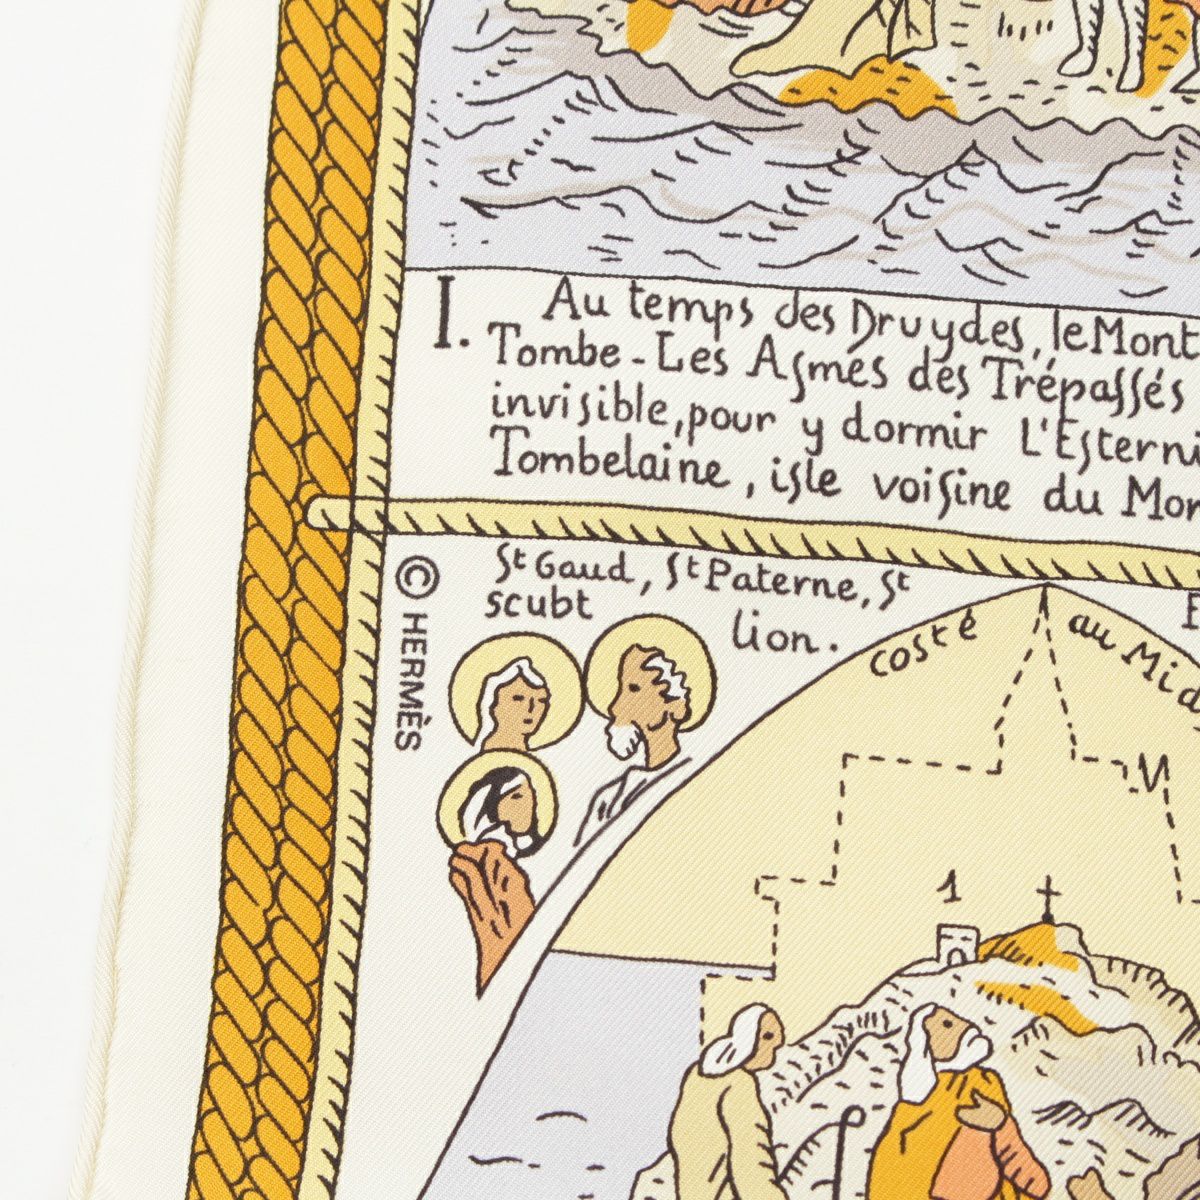 I. Au temps des Druydes, le Mont
Tombe - Les Asmes des Trépassés
invisible, pour y dormir L'Esterni
Tombelaine, isle voisine du Mon
© HERMÈS
St Gaud, St Paterne, St
scubt lion.
costé au Mid
1